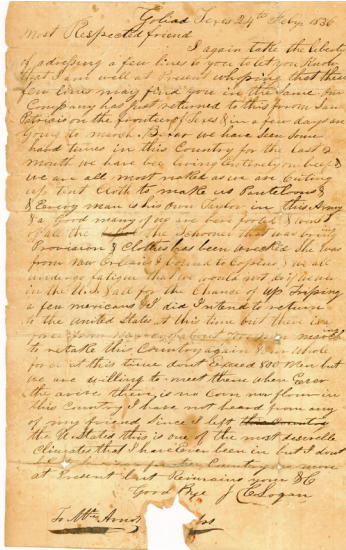 Goliad Texas 24th Feby 1836
Most Respected friend
I again take the liberty
of adressing a few lines to you to let you Know
that I am well at Present whoping that these
few lines may find you in the Same. our
Company has just returned to this from San
Patricio on the frontier of Texas & in a few days are
going to march. we have seen some
hard times in this Country for the last 2
month we have bee living entirely on beef &
we are all most naked as we are Cuting
up tent Cloth to make us Pantelons &
& Every man is his own Tailor in this Army
& a Good many of us are bare footed & want
of all the the Schooner that was bring
Provision & Clothes has been wrecked She was
from New Orleans & bound to Copano & we all
undergo fatigue that we would not
in the U.S. & all for the Chance of up Tripping
a few mexicans & I did I intend to return
to the United States at this time but there is
to retake this Country again & our Whole
force at this time dont Exceed 800 Men but
we are willing to meet them when Ever
the arive there is no Corn nor flour in
this Country I have not heard from any
of my friend Since I left
the U. States this is one of the most deserble
Climates that I have Ever been in but I dont
Country
at Present but Remains yours &C
Good Bye J C Logan
To Mr